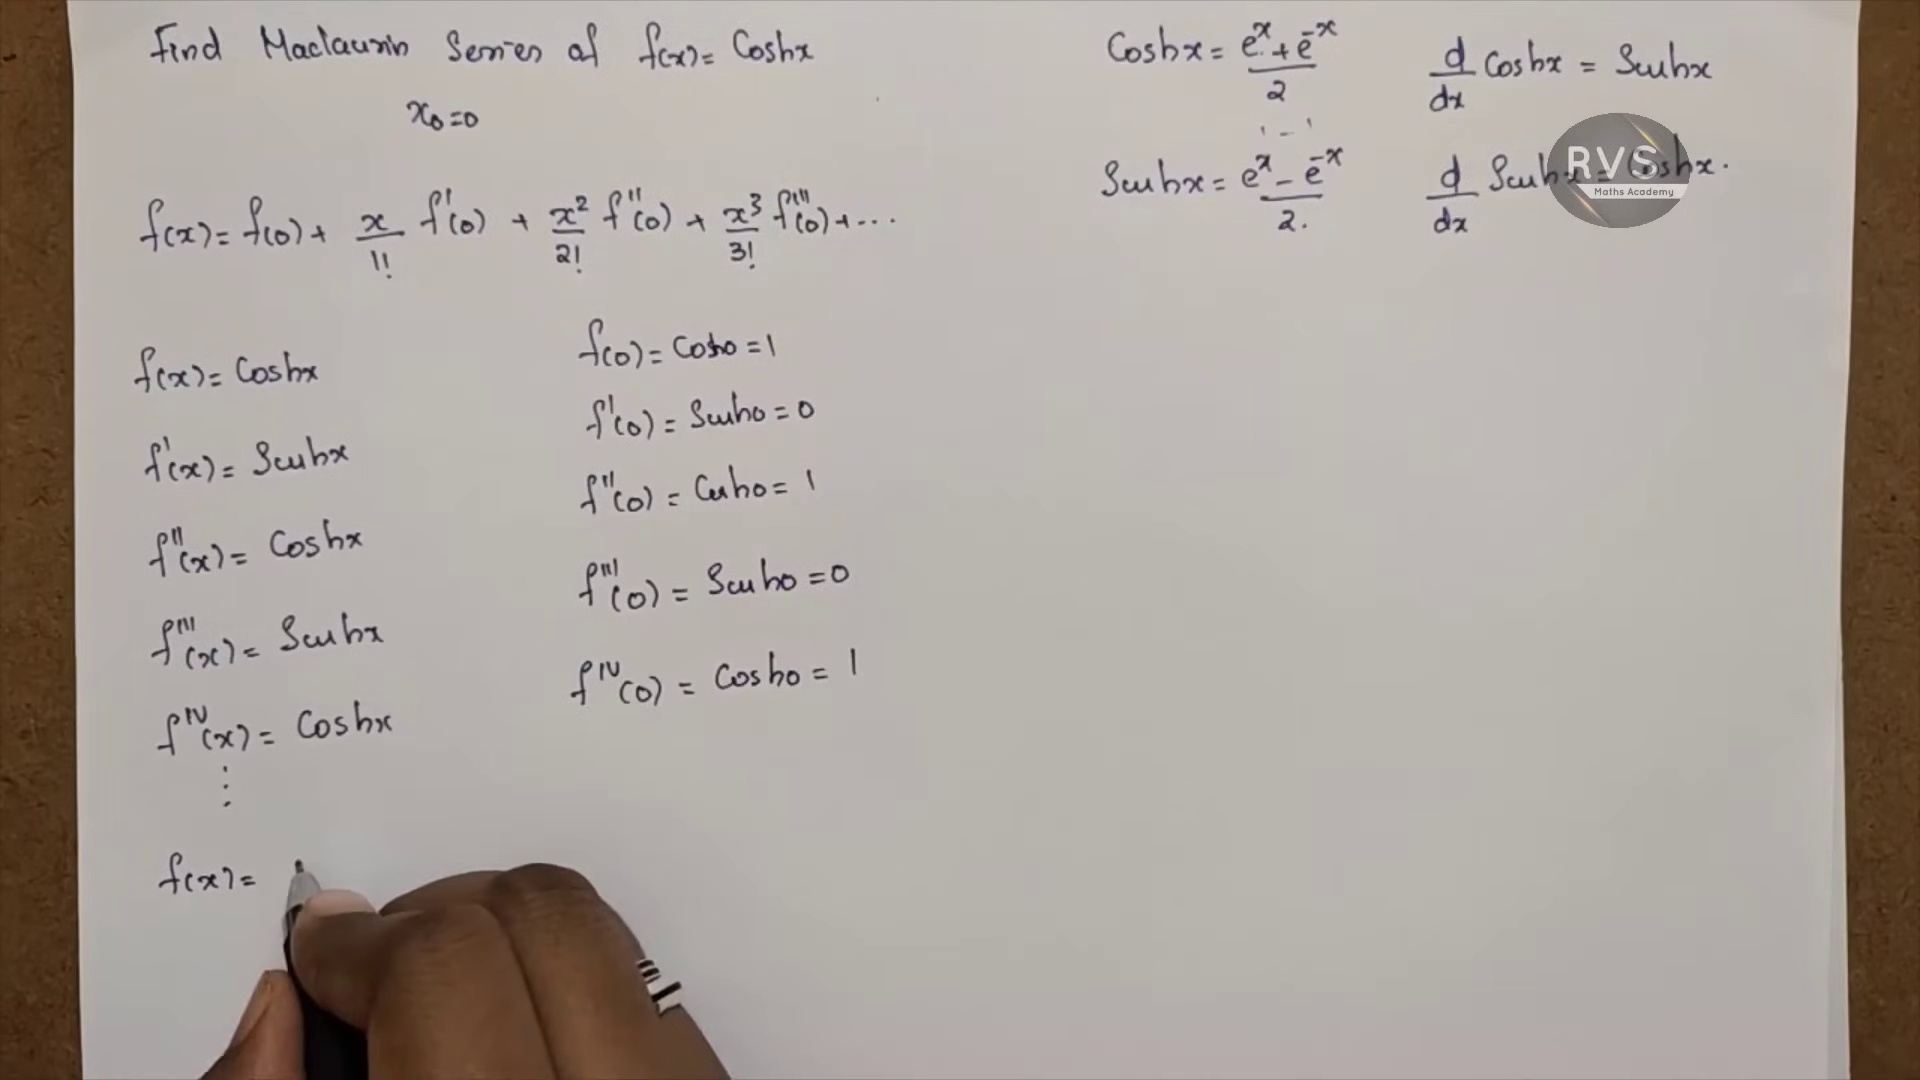 Find Maclaurin Series of f(x) = Coshx
x₀ = 0
f(x) = f(0) + x/1! f'(0) + x²/2! f''(0) + x³/3! f'''(0) + ...
f(x) = Coshx
f'(x) = Sinhx
f''(x) = Coshx
f'''(x) = Sinhx
f^IV(x) = Coshx
⋮
f(x) =
f(0) = Cosh0 = 1
f'(0) = Sinh0 = 0
f''(0) = Cosh0 = 1
f'''(0) = Sinh0 = 0
f^IV(0) = Cosh0 = 1
Coshx = (e^x + e^-x)/2
1 - 1
Sinhx = (e^x - e^-x)/2.
d/dx Coshx = Sinhx
d/dx Sinhx = Coshx.
RVS
Maths Academy